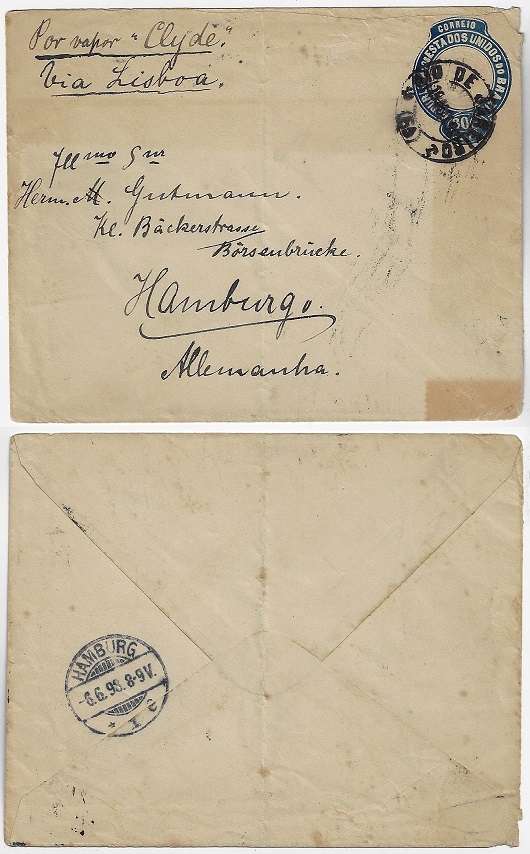 Por vapor "Clyde."
Via Lisboa.
CORREIO
ESTADOS UNIDOS DO BRA
RIO DE JANEIRO
Illmo Snr
Herm. M. Gutmann.
Kl. Bäckerstrasse
Börsenbrücke.
Hamburgo.
Allemanha.
HAMBURG
-6.6.98.8-9V.
* I c